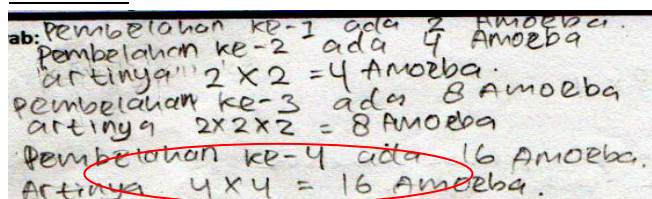 ab: Pembelahan ke-1 ada 2 Amoeba.
Pembelahan ke-2 ada 4 Amoeba
"artinya" 2 x 2 = 4 Amoeba.
Pembelahan ke-3 ada 8 Amoeba
artinya 2x2x2 = 8 Amoeba
Pembelahan ke-4 ada 16 Amoeba.
Artinya 4 x 4 = 16 Amoeba.